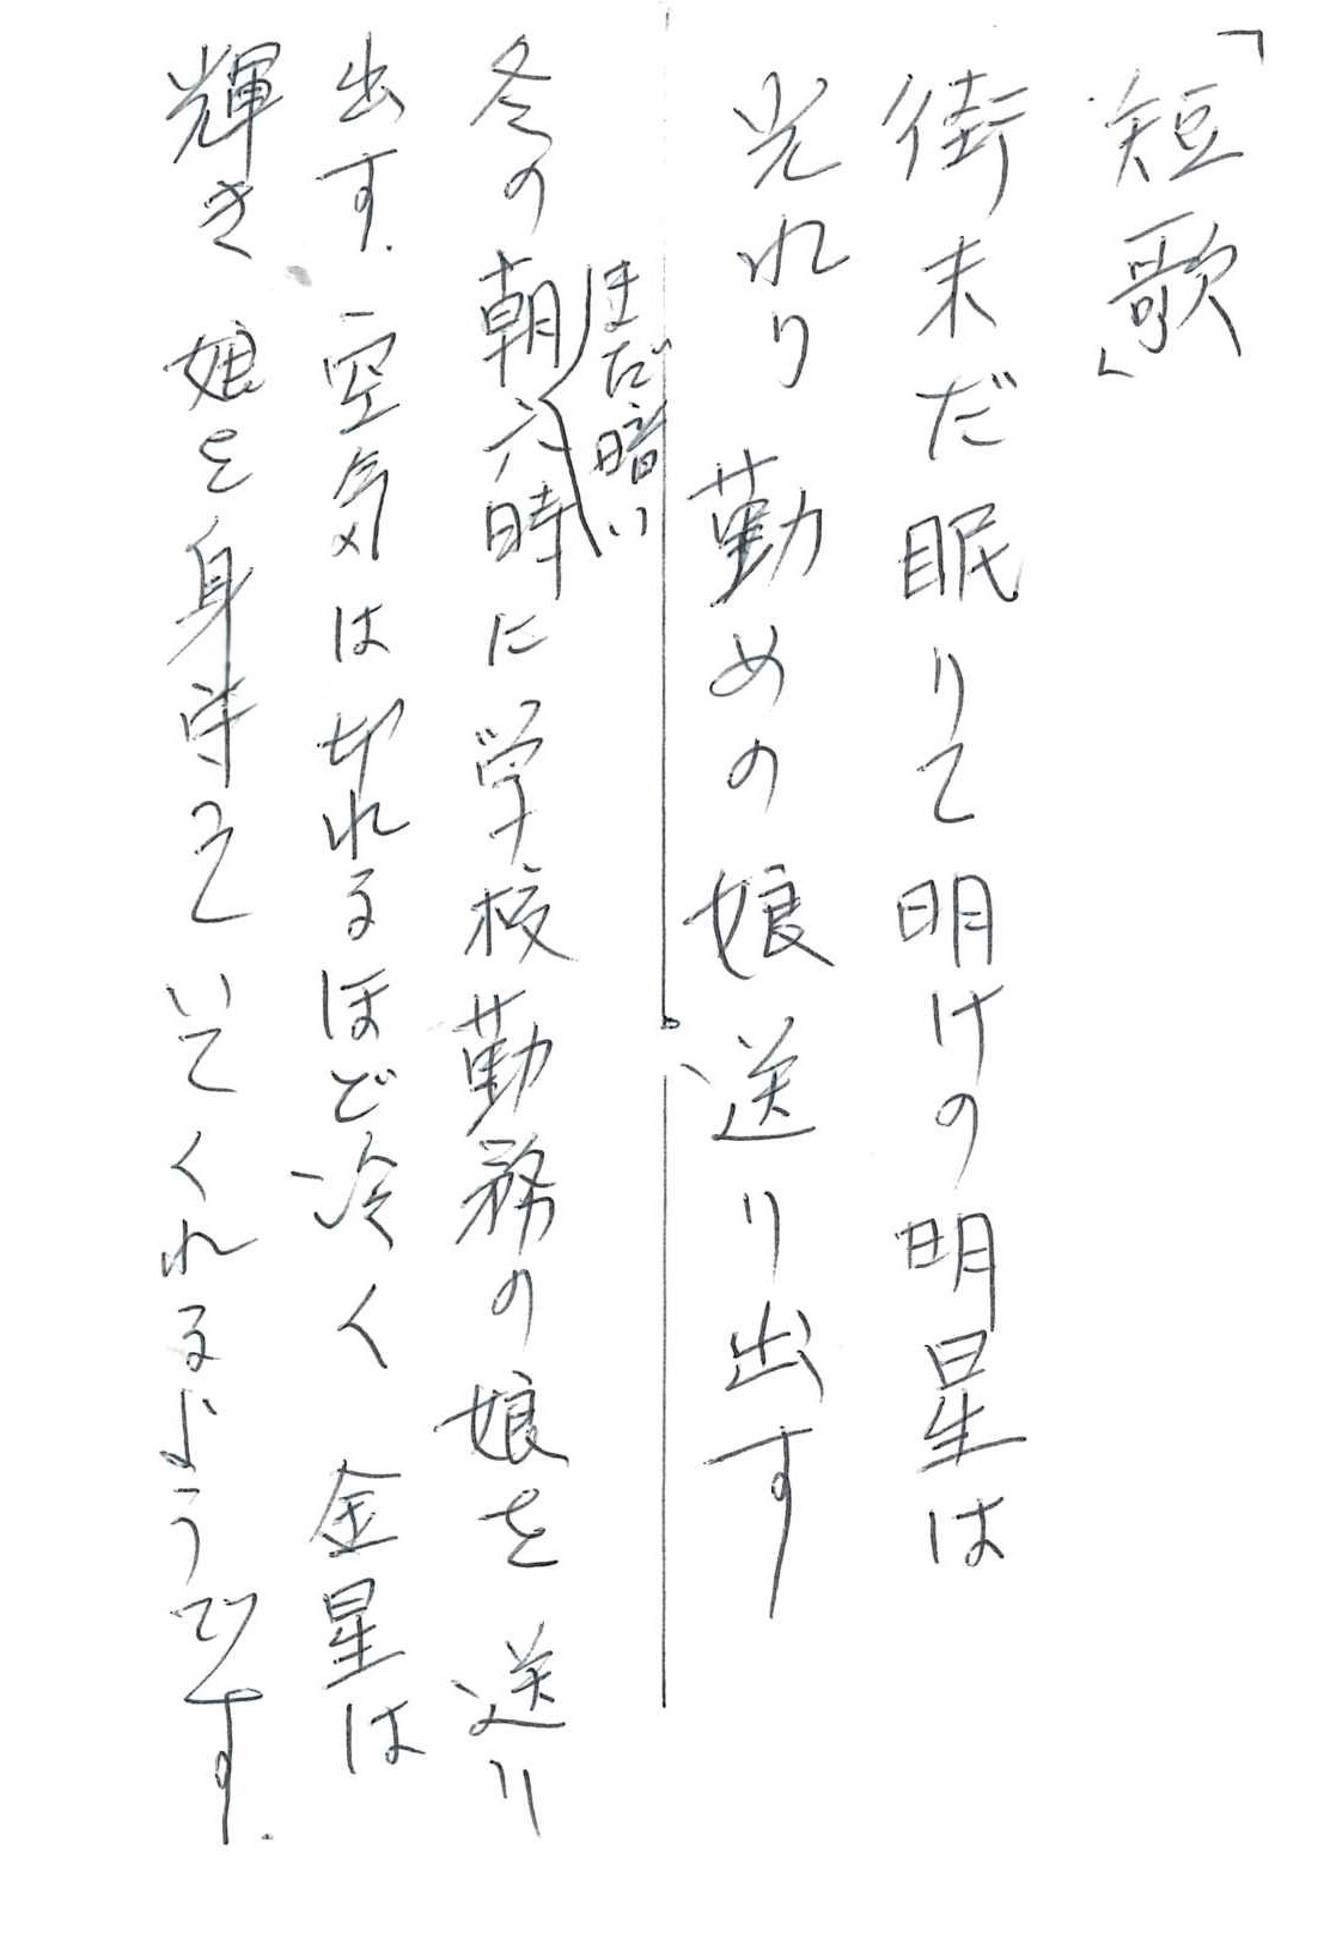 「短歌」
街未だ眠りて明けの明星は
光れり 勤めの娘 送り出す
冬の朝まだ暗い六時に学校勤務の娘を送り
出す.空気は切れるほど冷く 金星は
輝き 娘を身守っていてくれるようです.